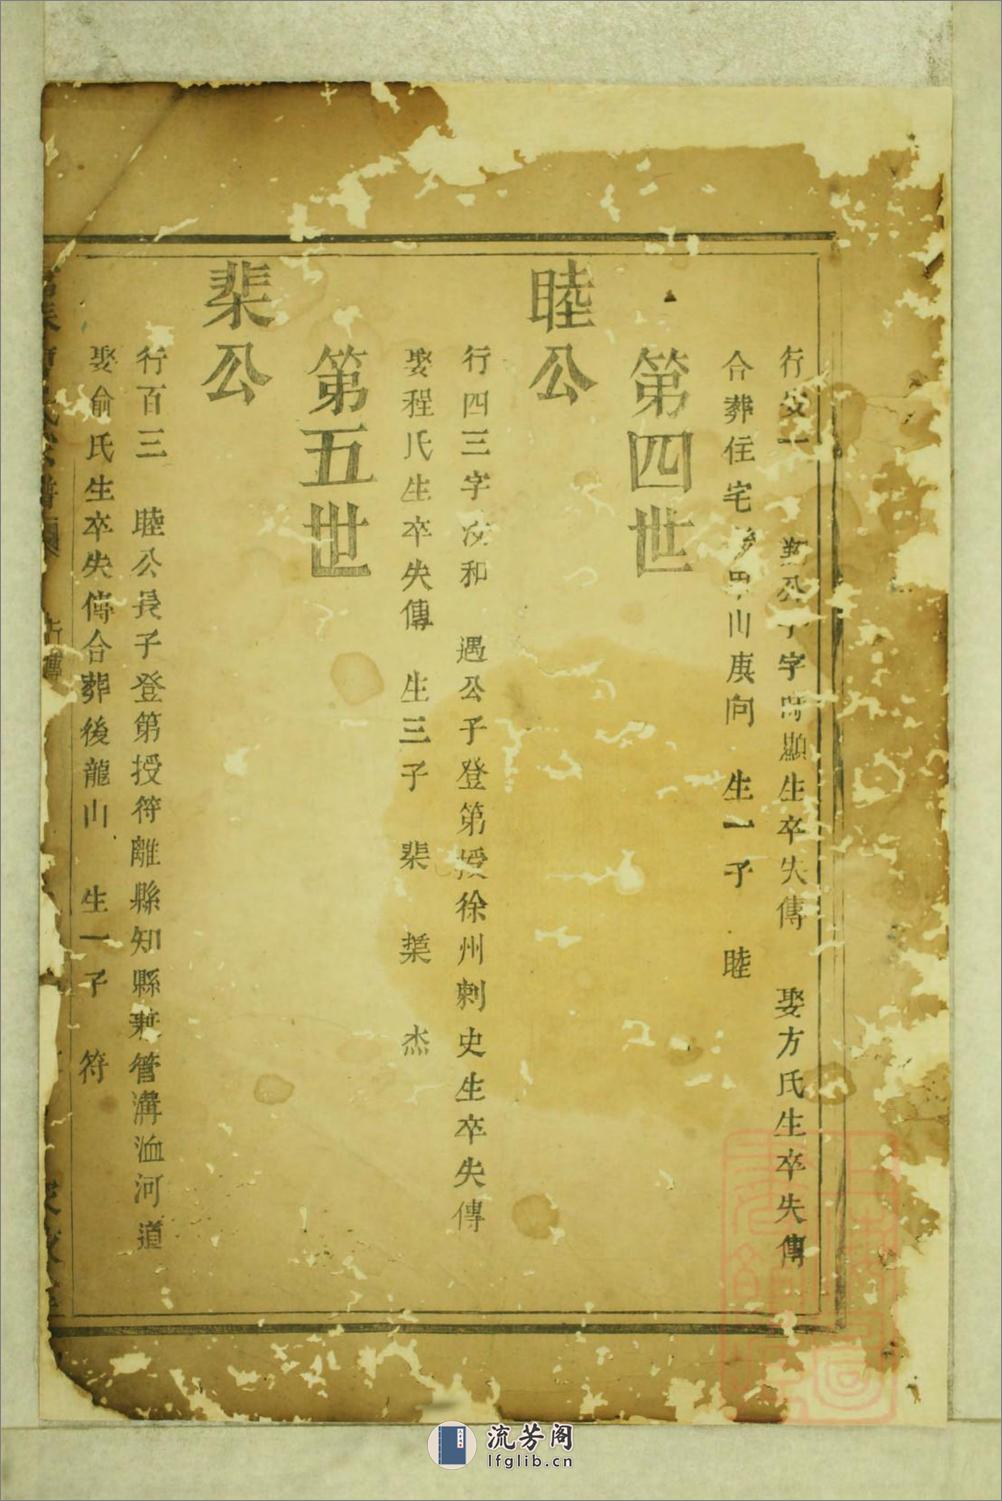 行 一 公子字 顯生卒失傳 娶方氏生卒失傳
合葬住宅 甲山庚向 生一子 睦
第四世
睦公
行四三字汝和 遇公子登第授徐州刺史生卒失傳
娶程氏生卒失傳 生三子 棐 榘 杰
第五世
棐公
行百三 睦公長子登第授符離縣知縣兼管溝洫河道
娶俞氏生卒失傳合葬後龍山 生一子 符
流芳阁
lfglib.cn